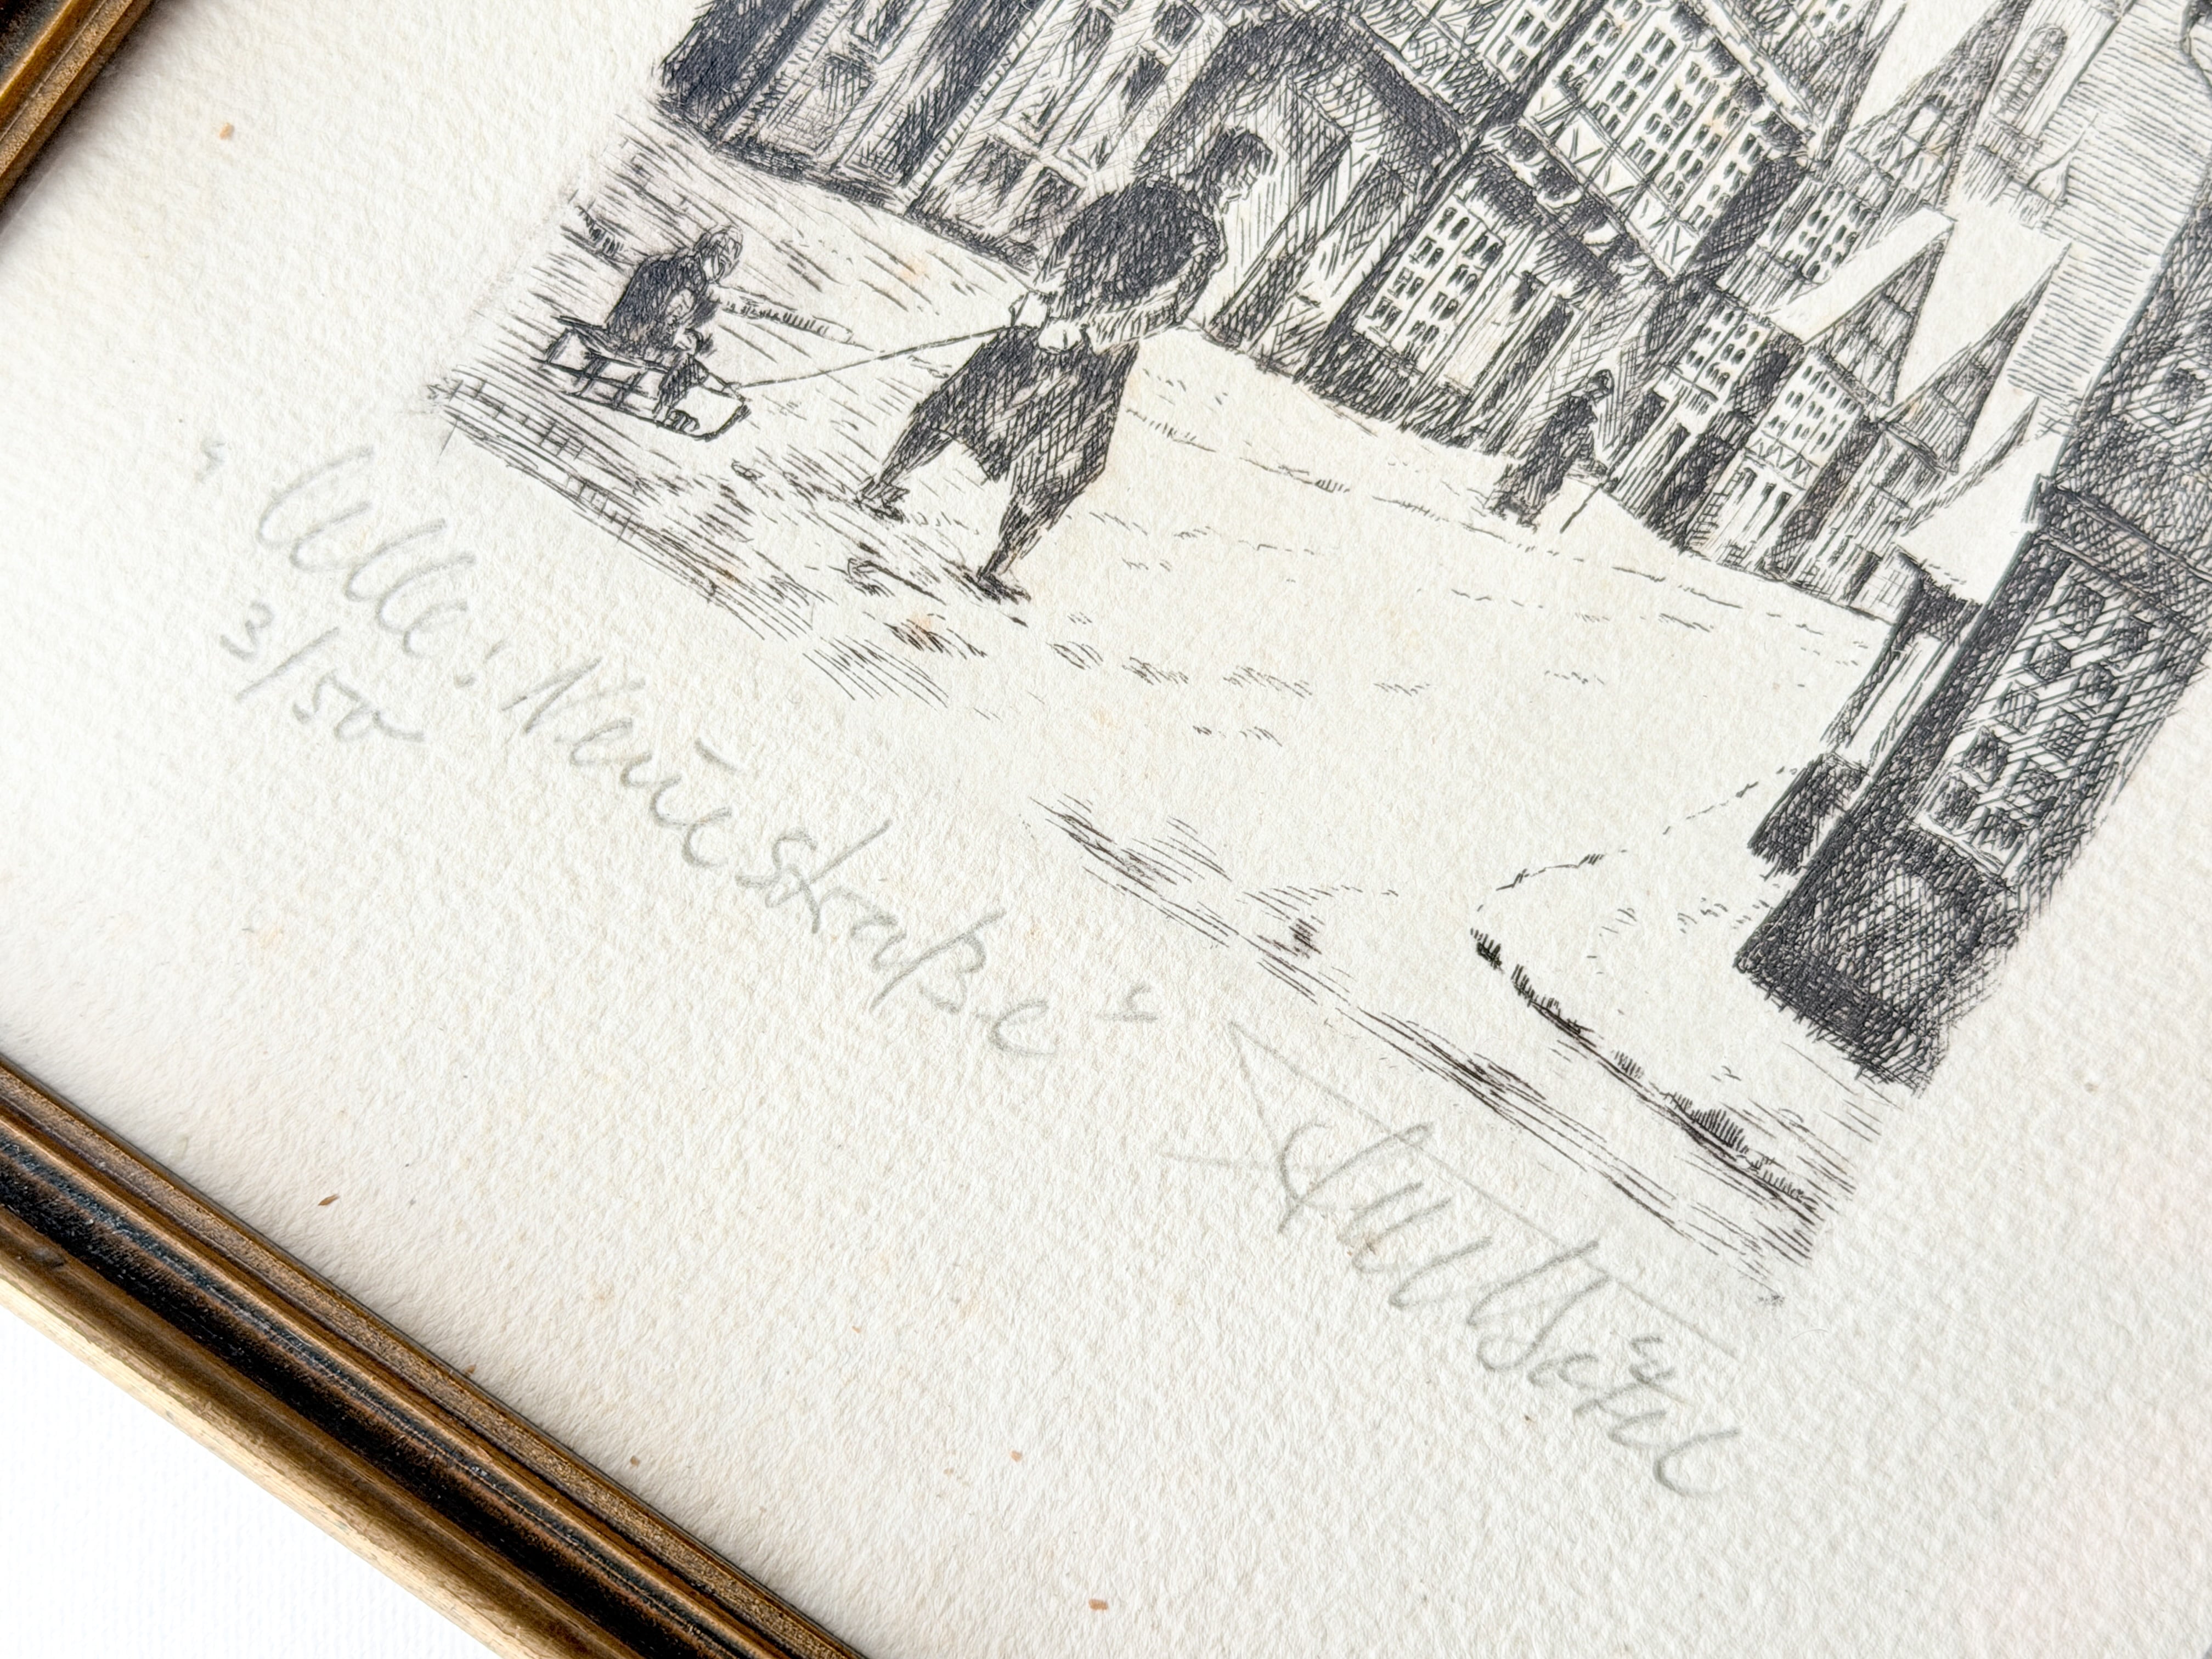 „Celle: Neue Straße“
3/50